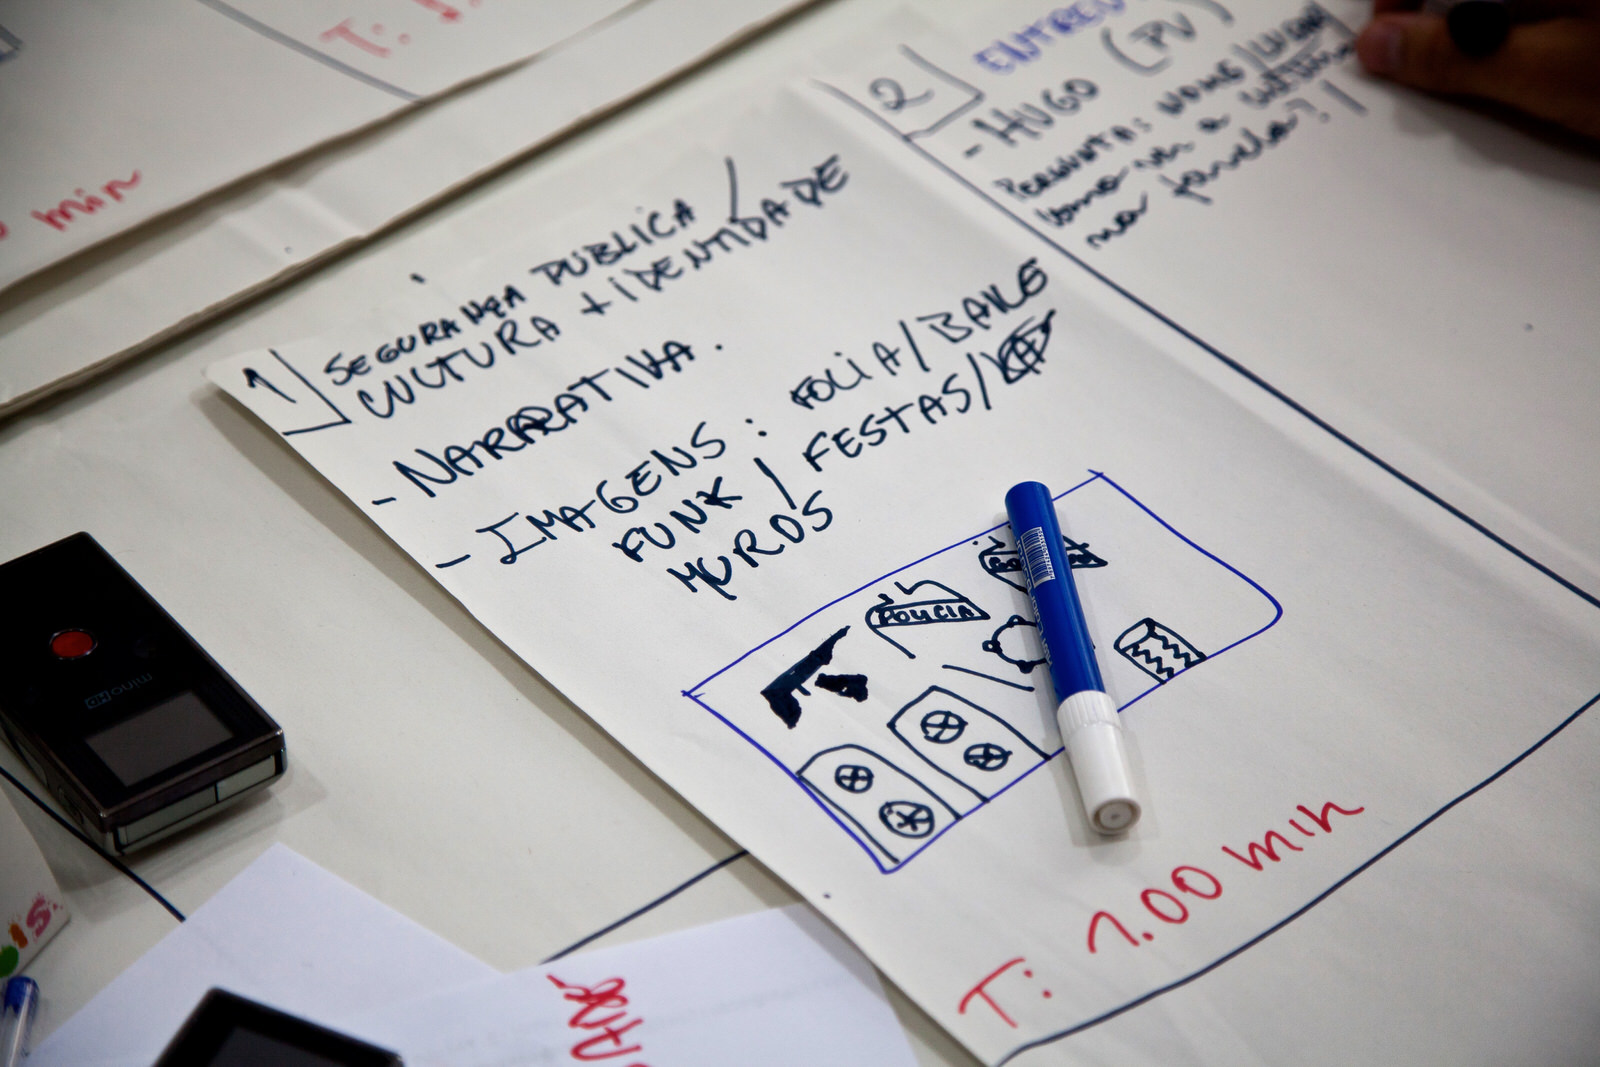 min
1
SEGURANÇA PÚBLICA /
CULTURA + IDENTIDADE
- NARRATIVA.
- IMAGENS: FOLIA / BAILE
FUNK / FESTAS /
MUROS
POLICIA
T: 1.00 min
2
ENTREV
- HUGO (PV)
PERGUNTA: NOME /
como vê a
na favela? /
T:
mino HD